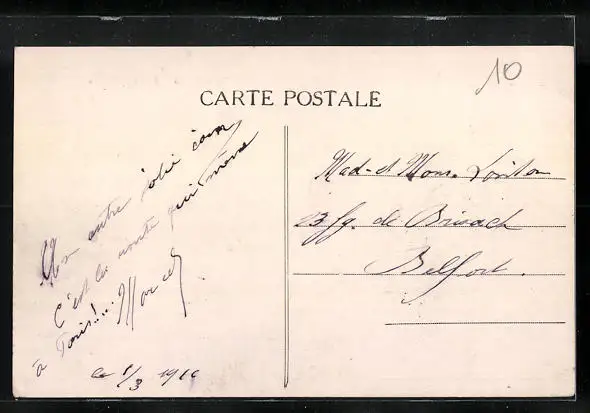 10
CARTE POSTALE
Un autre joli coin
C'est la route qui mène
à Paris!.. Marcel
ce 1/3 1916
Mad- et Mons.
23 fg. de Brisach
Belfort.